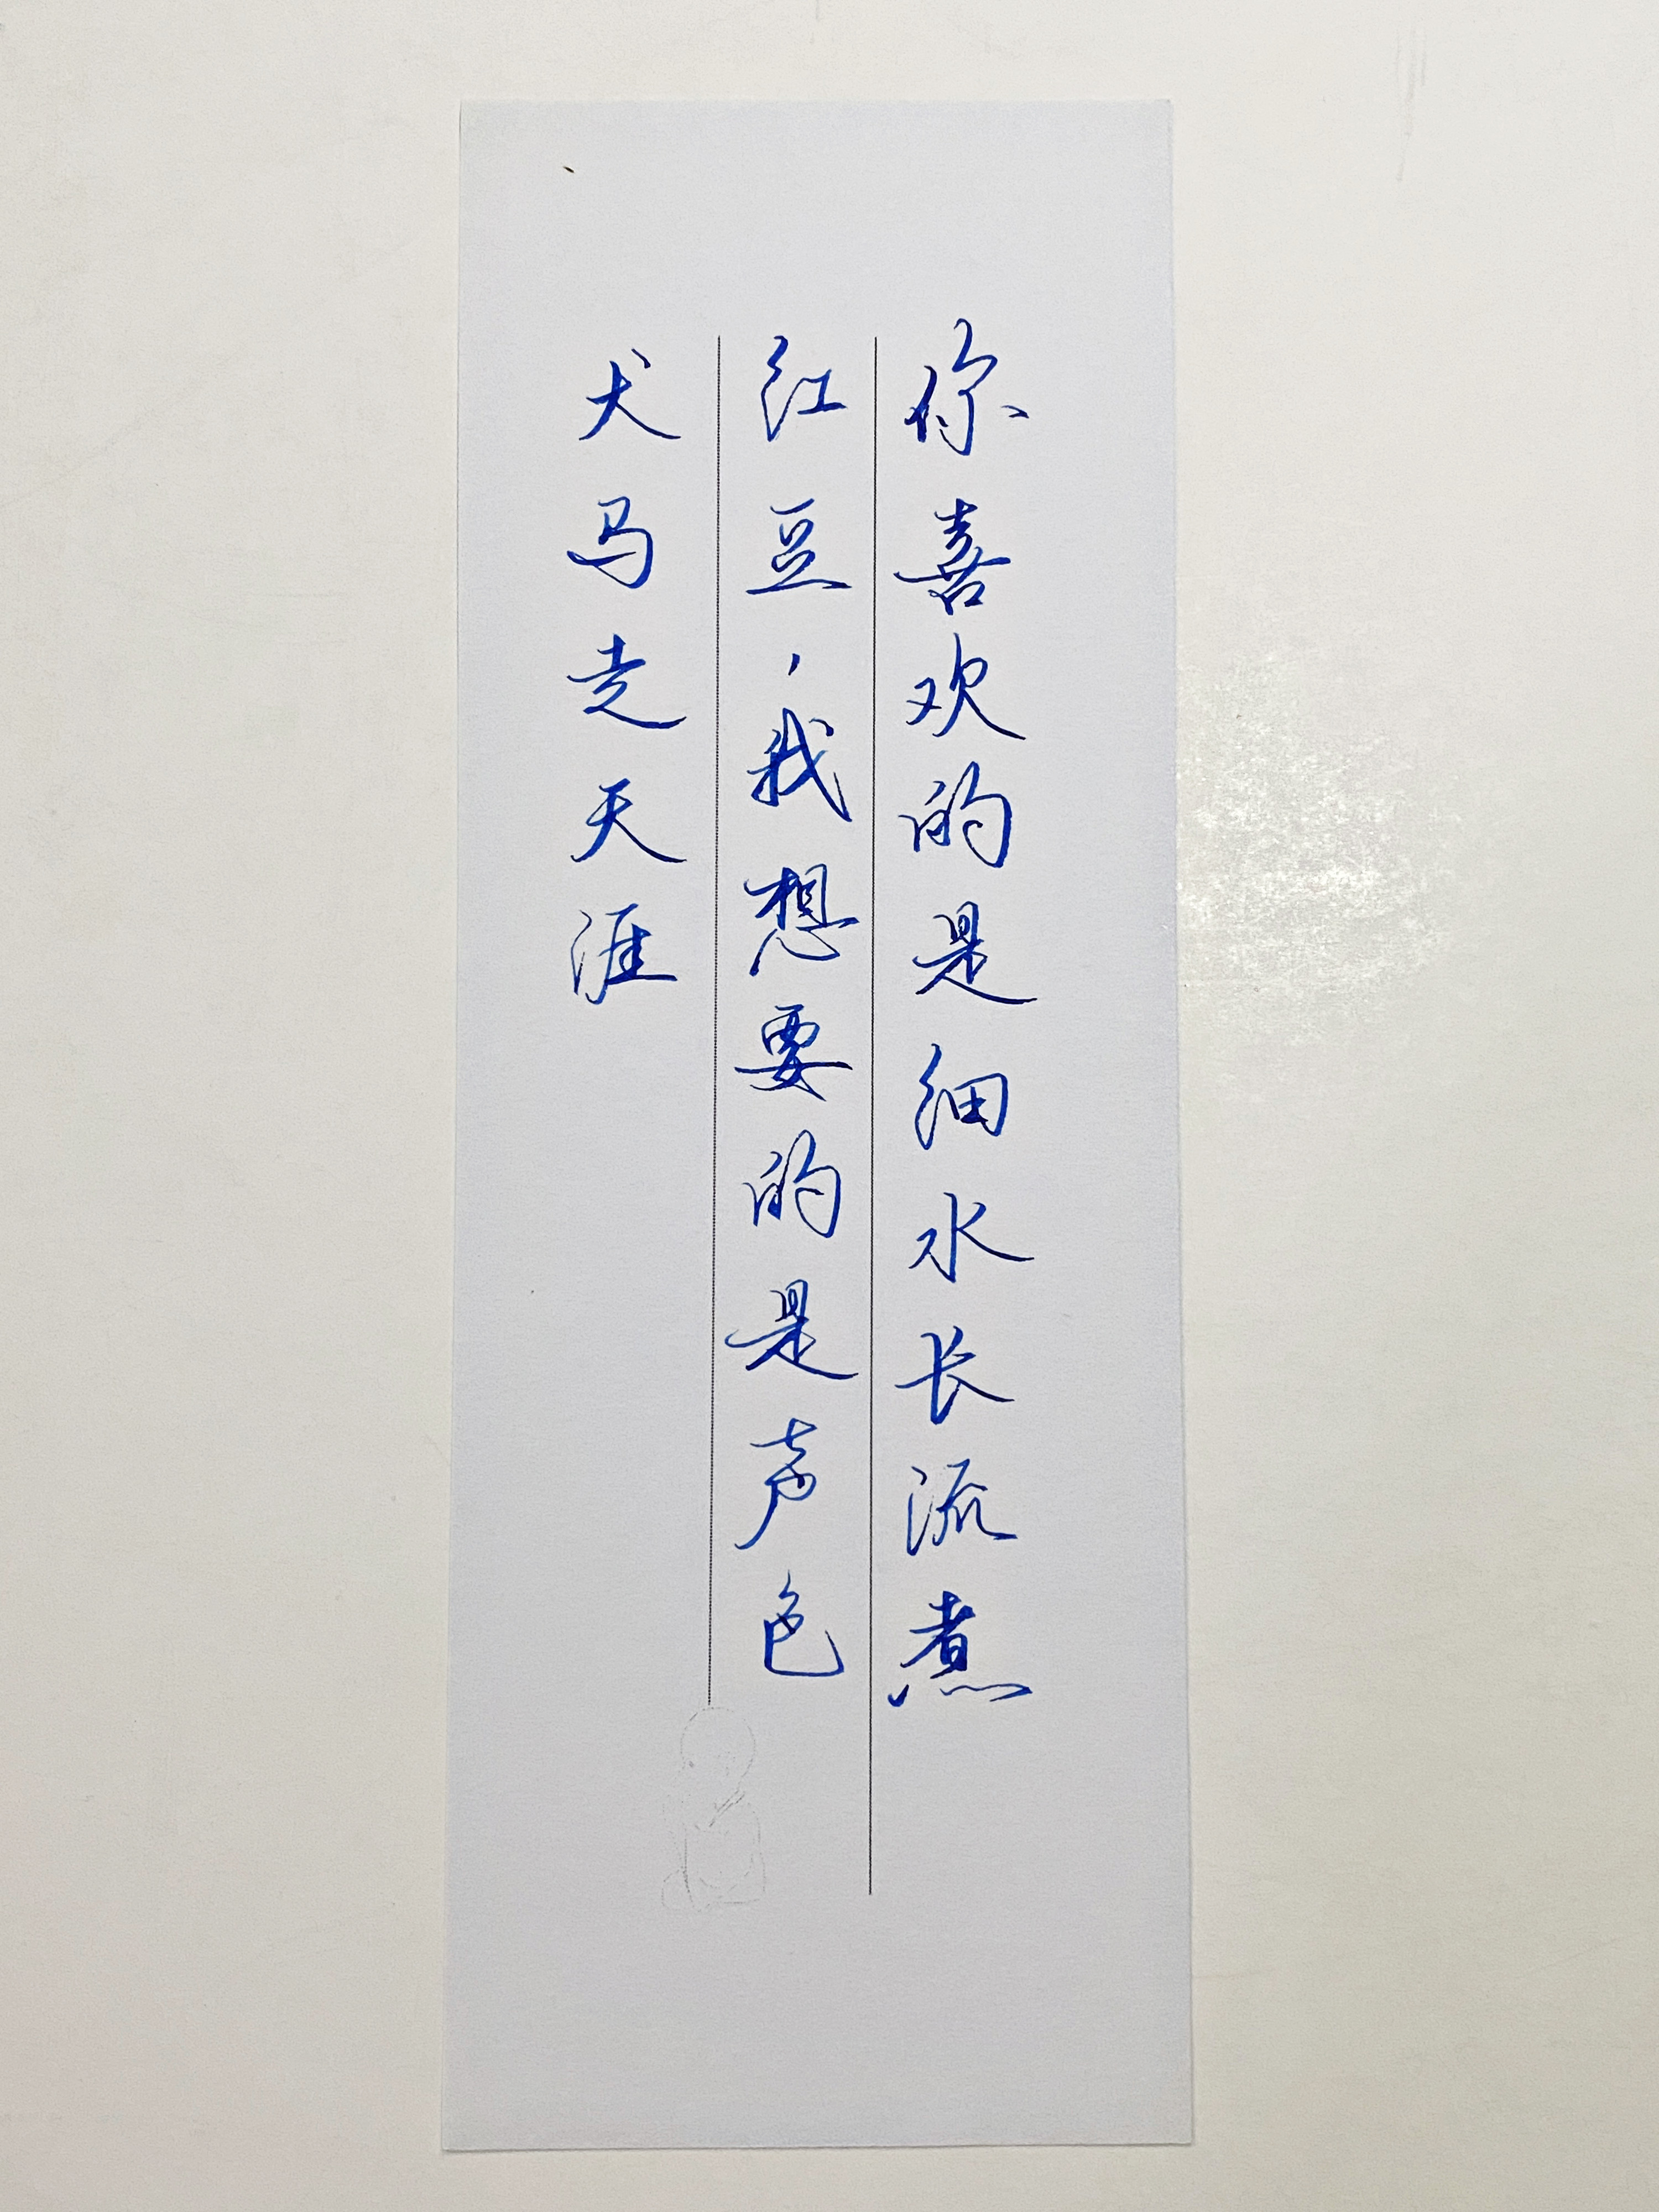 你喜欢的是细水长流煮
红豆，我想要的是声色
犬马走天涯